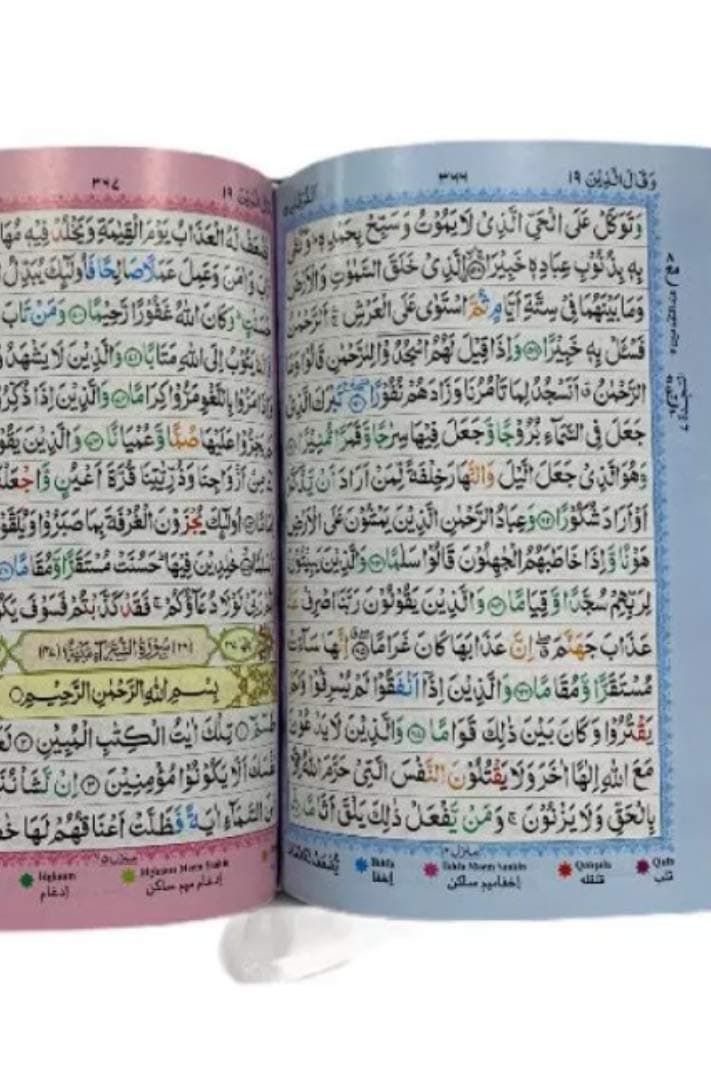 وَقَالَ الَّذِیْنَ ١٩
٣٦٦
وَتَوَكَّلْ عَلَى الْحَیِّ الَّذِیْ لَا یَمُوْتُ وَسَبِّحْ بِحَمْدِهٖ ؕ وَكَفٰى
بِهٖ بِذُنُوْبِ عِبَادِهٖ خَبِیْرَا ۟ الَّذِیْ خَلَقَ السَّمٰوٰتِ وَالْاَرْضَ
وَمَا بَیْنَهُمَا فِیْ سِتَّةِ اَیَّامٍ ثُمَّ اسْتَوٰى عَلَى الْعَرْشِ ۛۚ اَلرَّحْمٰنُ
فَسْـَٔلْ بِهٖ خَبِیْرًا ۟ وَاِذَا قِیْلَ لَهُمُ اسْجُدُوْا لِلرَّحْمٰنِ قَالُوْا وَمَا
الرَّحْمٰنُ ۗ اَنَسْجُدُ لِمَا تَاْمُرُنَا وَزَادَهُمْ نُفُوْرًا ۟ تَبٰرَكَ الَّذِیْ
جَعَلَ فِی السَّمَآءِ بُرُوْجًا وَّجَعَلَ فِیْهَا سِرٰجًا وَّقَمَرًا مُّنِیْرًا
وَهُوَ الَّذِیْ جَعَلَ الَّیْلَ وَالنَّهَارَ خِلْفَةً لِّمَنْ اَرَادَ اَنْ یَّذَّكَّرَ
اَوْ اَرَادَ شُكُوْرًا ۟ وَعِبَادُ الرَّحْمٰنِ الَّذِیْنَ یَمْشُوْنَ عَلَى الْاَرْضِ
هَوْنًا وَّاِذَا خَاطَبَهُمُ الْجٰهِلُوْنَ قَالُوْا سَلٰمًا ۟ وَالَّذِیْنَ یَبِیْتُوْنَ
لِرَبِّهِمْ سُجَّدًا وَّقِیَامًا ۟ وَالَّذِیْنَ یَقُوْلُوْنَ رَبَّنَا اصْرِفْ عَنَّا
عَذَابَ جَهَنَّمَ ۖ اِنَّ عَذَابَهَا كَانَ غَرَامًا ۟ اِنَّهَا سَآءَتْ
مُسْتَقَرًّا وَّمُقَامًا ۟ وَالَّذِیْنَ اِذَاۤ اَنْفَقُوْا لَمْ یُسْرِفُوْا وَلَمْ
یَقْتُرُوْا وَكَانَ بَیْنَ ذٰلِكَ قَوَامًا ۟ وَالَّذِیْنَ لَا یَدْعُوْنَ
مَعَ اللّٰهِ اِلٰهًا اٰخَرَ وَلَا یَقْتُلُوْنَ النَّفْسَ الَّتِیْ حَرَّمَ اللّٰهُ اِلَّا
بِالْحَقِّ وَلَا یَزْنُوْنَ ۚ وَمَنْ یَّفْعَلْ ذٰلِكَ یَلْقَ اَثَامًا
Ikhfa
Ikhfa Meem Saakin
Qalqala
Qulb
إخفا
إخفا میم ساكن
قلقله
قلب
١٩
٣٦٧
یُّضٰعَفْ لَهُ الْعَذَابُ یَوْمَ الْقِیٰمَةِ وَیَخْلُدْ فِیْهٖ مُهَا
وَاٰمَنَ وَعَمِلَ عَمَلًا صَالِحًا فَاُولٰٓىِٕكَ یُبَدِّلُ
حَسَنٰتٍ ؕ وَكَانَ اللّٰهُ غَفُوْرًا رَّحِیْمًا ۟ وَمَنْ تَابَ
یَتُوْبُ اِلَى اللّٰهِ مَتَابًا ۟ وَالَّذِیْنَ لَا یَشْهَدُوْ
وَاِذَا مَرُّوْا بِاللَّغْوِ مَرُّوْا كِرَامًا ۟ وَالَّذِیْنَ اِذَا ذُكِّرُ
یَخِرُّوْا عَلَیْهَا صُمًّا وَّعُمْیَانًا ۟ وَالَّذِیْنَ یَقُوْ
مِنْ اَزْوَاجِنَا وَذُرِّیّٰتِنَا قُرَّةَ اَعْیُنٍ وَّاجْعَلْنَا
اُولٰٓىِٕكَ یُجْزَوْنَ الْغُرْفَةَ بِمَا صَبَرُوْا وَیُلَقَّوْ
خٰلِدِیْنَ فِیْهَا ؕ حَسُنَتْ مُسْتَقَرًّا وَّمُقَامًا
رَبِّیْ لَوْلَا دُعَآؤُكُمْ ۚ فَقَدْ كَذَّبْتُمْ فَسَوْفَ یَكُوْ
سُوْرَةُ الشُّعَرَآءِ مَكِّیَّةٌ
بِسْمِ اللّٰهِ الرَّحْمٰنِ الرَّحِیْمِ
طٰسٓمّٓ ۟ تِلْكَ اٰیٰتُ الْكِتٰبِ الْمُبِیْنِ ۟ لَعَ
نَّفْسَكَ اَلَّا یَكُوْنُوْا مُؤْمِنِیْنَ ۟ اِنْ نَّشَاْ نُنَ
مِّنَ السَّمَآءِ اٰیَةً فَظَلَّتْ اَعْنَاقُهُمْ لَهَا خٰضِ
Idghaam
Idghaam Meem Saakin
إدغام
إدغام میم ساكن